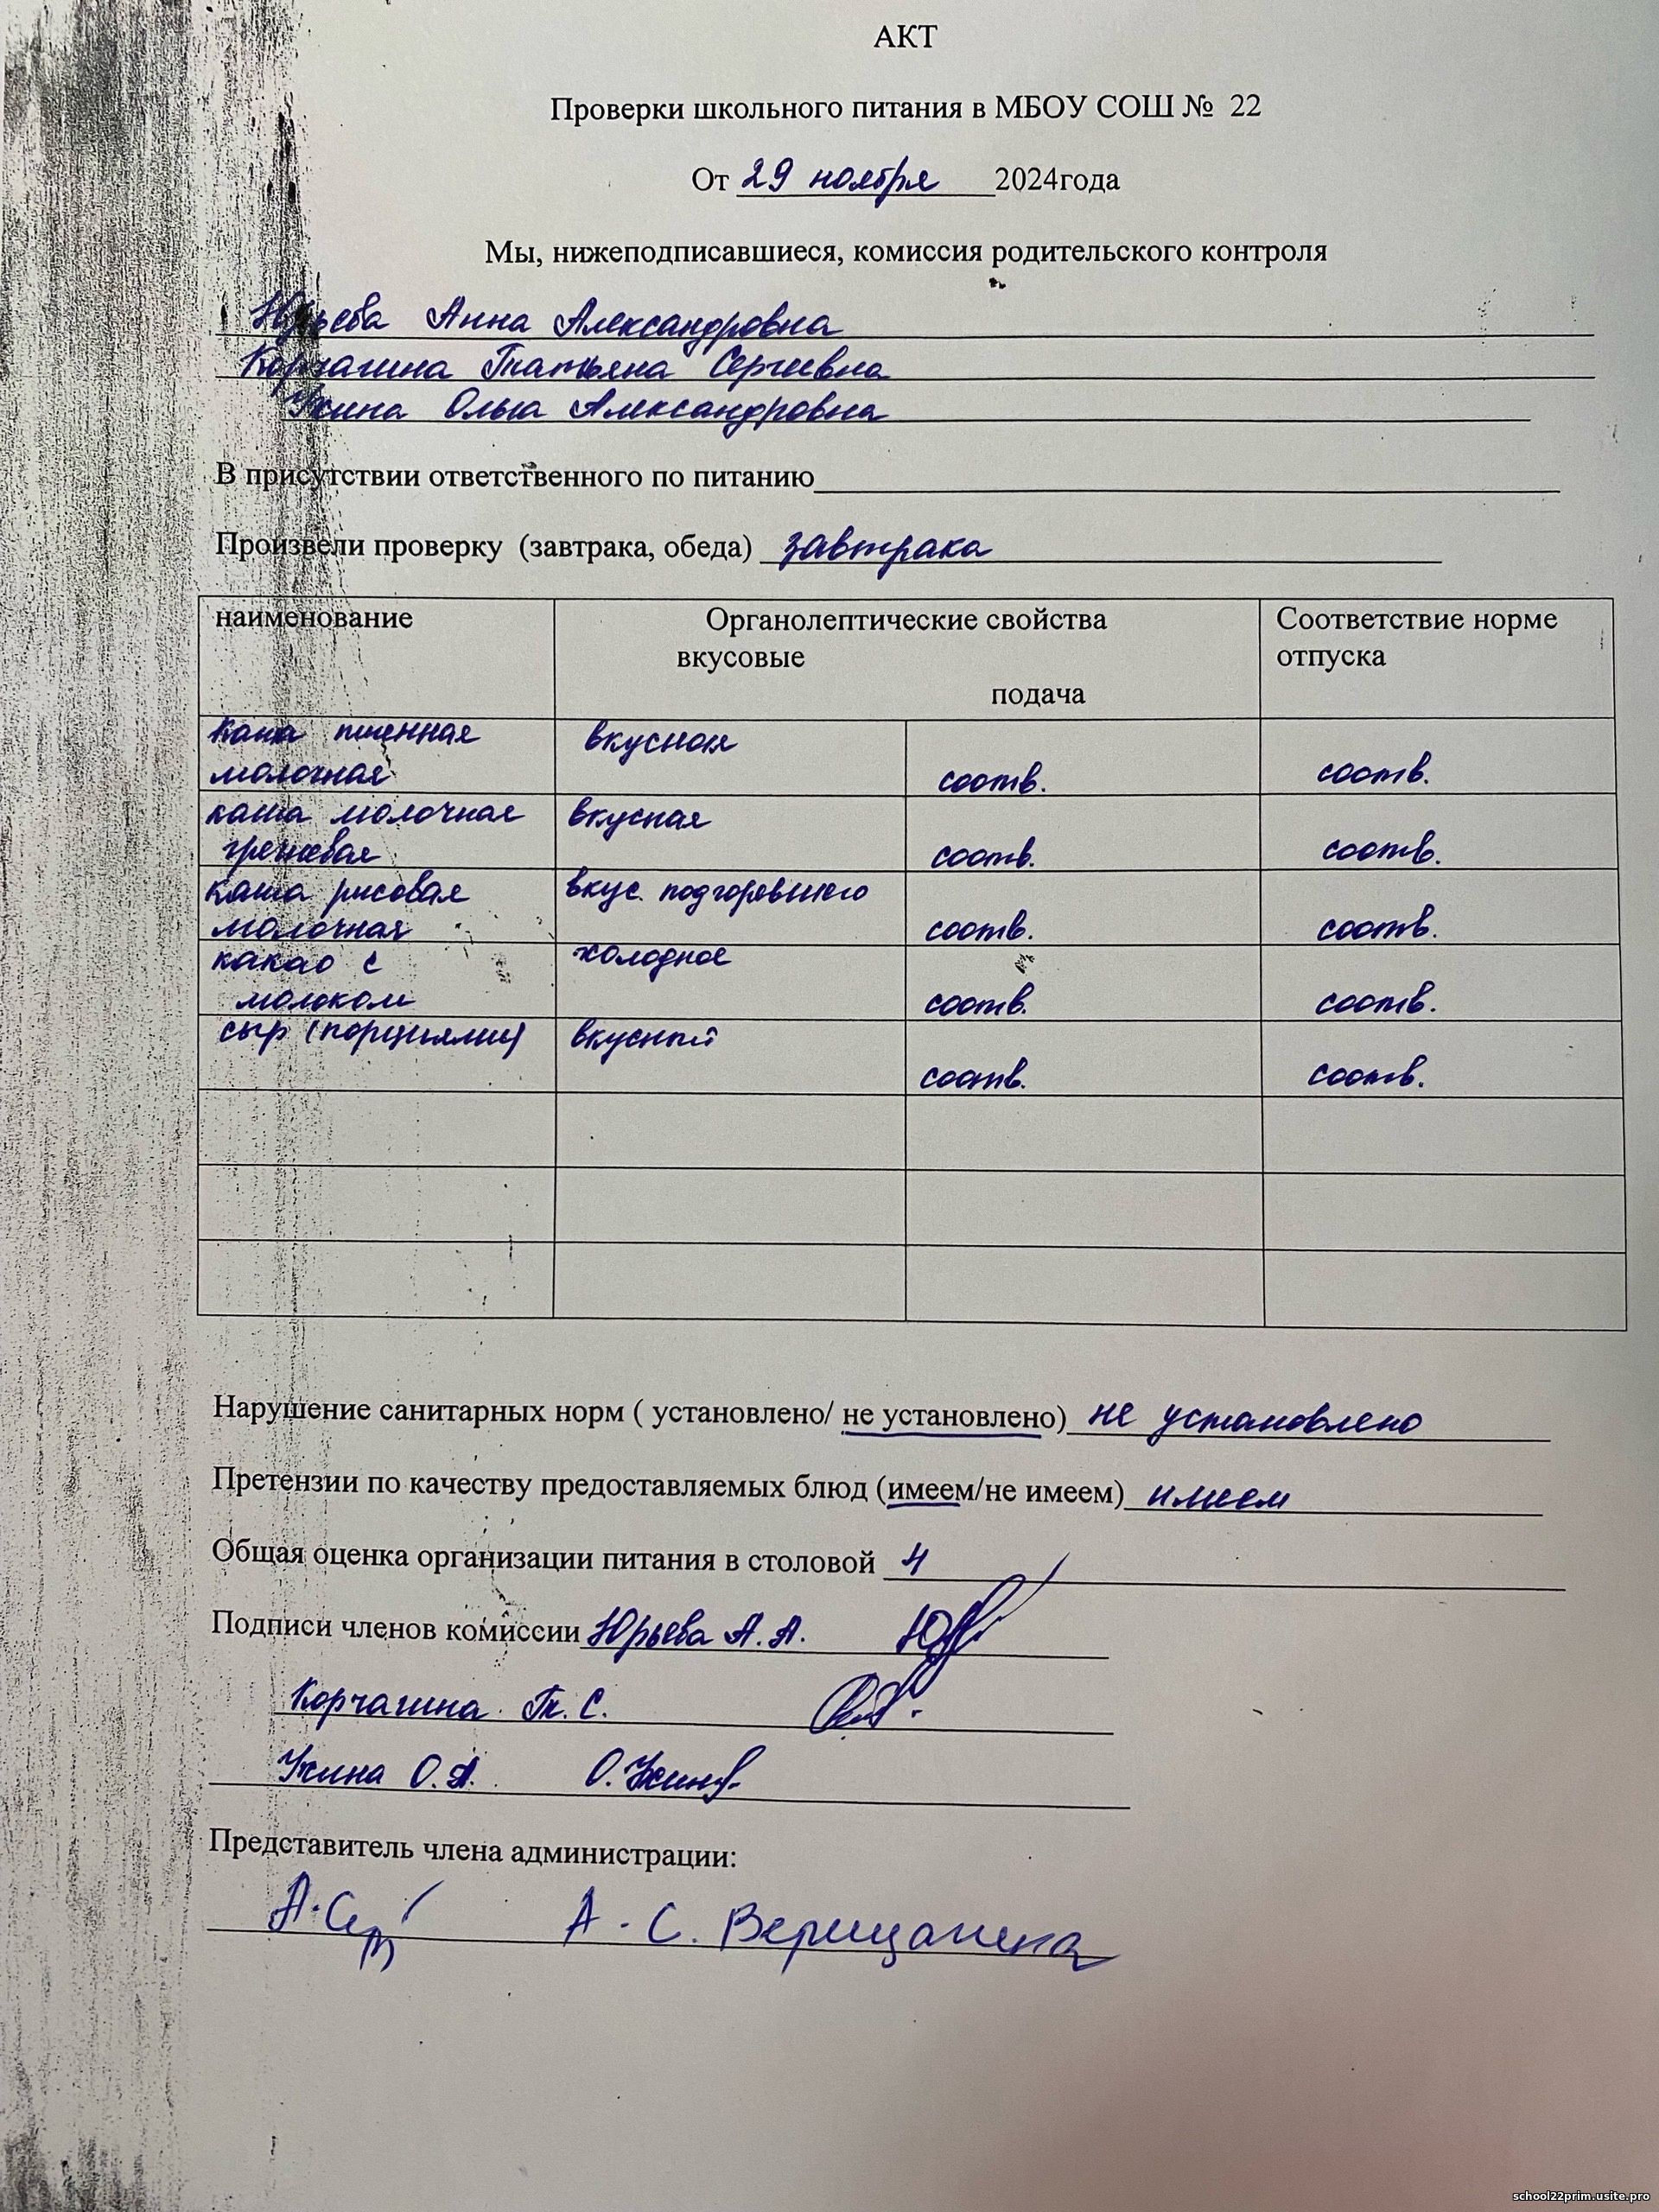 АКТ
Проверки школьного питания в МБОУ СОШ № 22
От 29 ноября 2024года
Мы, нижеподписавшиеся, комиссия родительского контроля
Юрьева Анна Александровна
Корчагина Татьяна Сергеевна
Александровна
В присутствии ответственного по питанию
Произвели проверку (завтрака, обеда) завтрака
наименование Органолептические свойства Соответствие норме
вкусовые отпуска
подача
каша пшенная вкусная
молочная соотв. соотв.
каша молочная вкусная
гречневая соотв. соотв.
каша рисовая вкус подгоревшего
молочная соотв. соотв.
какао с холодное
молоком соотв. соотв.
сыр (порциями) вкусный
соотв. соотв.
Нарушение санитарных норм ( установлено/ не установлено) не установлено
Претензии по качеству предоставляемых блюд (имеем/не имеем) имеем
Общая оценка организации питания в столовой 4
Подписи членов комиссии Юрьева А.А.
Корчагина Т. С.
О.А.
Представитель члена администрации:
А. С. Верещагина
school22prim.usite.pro